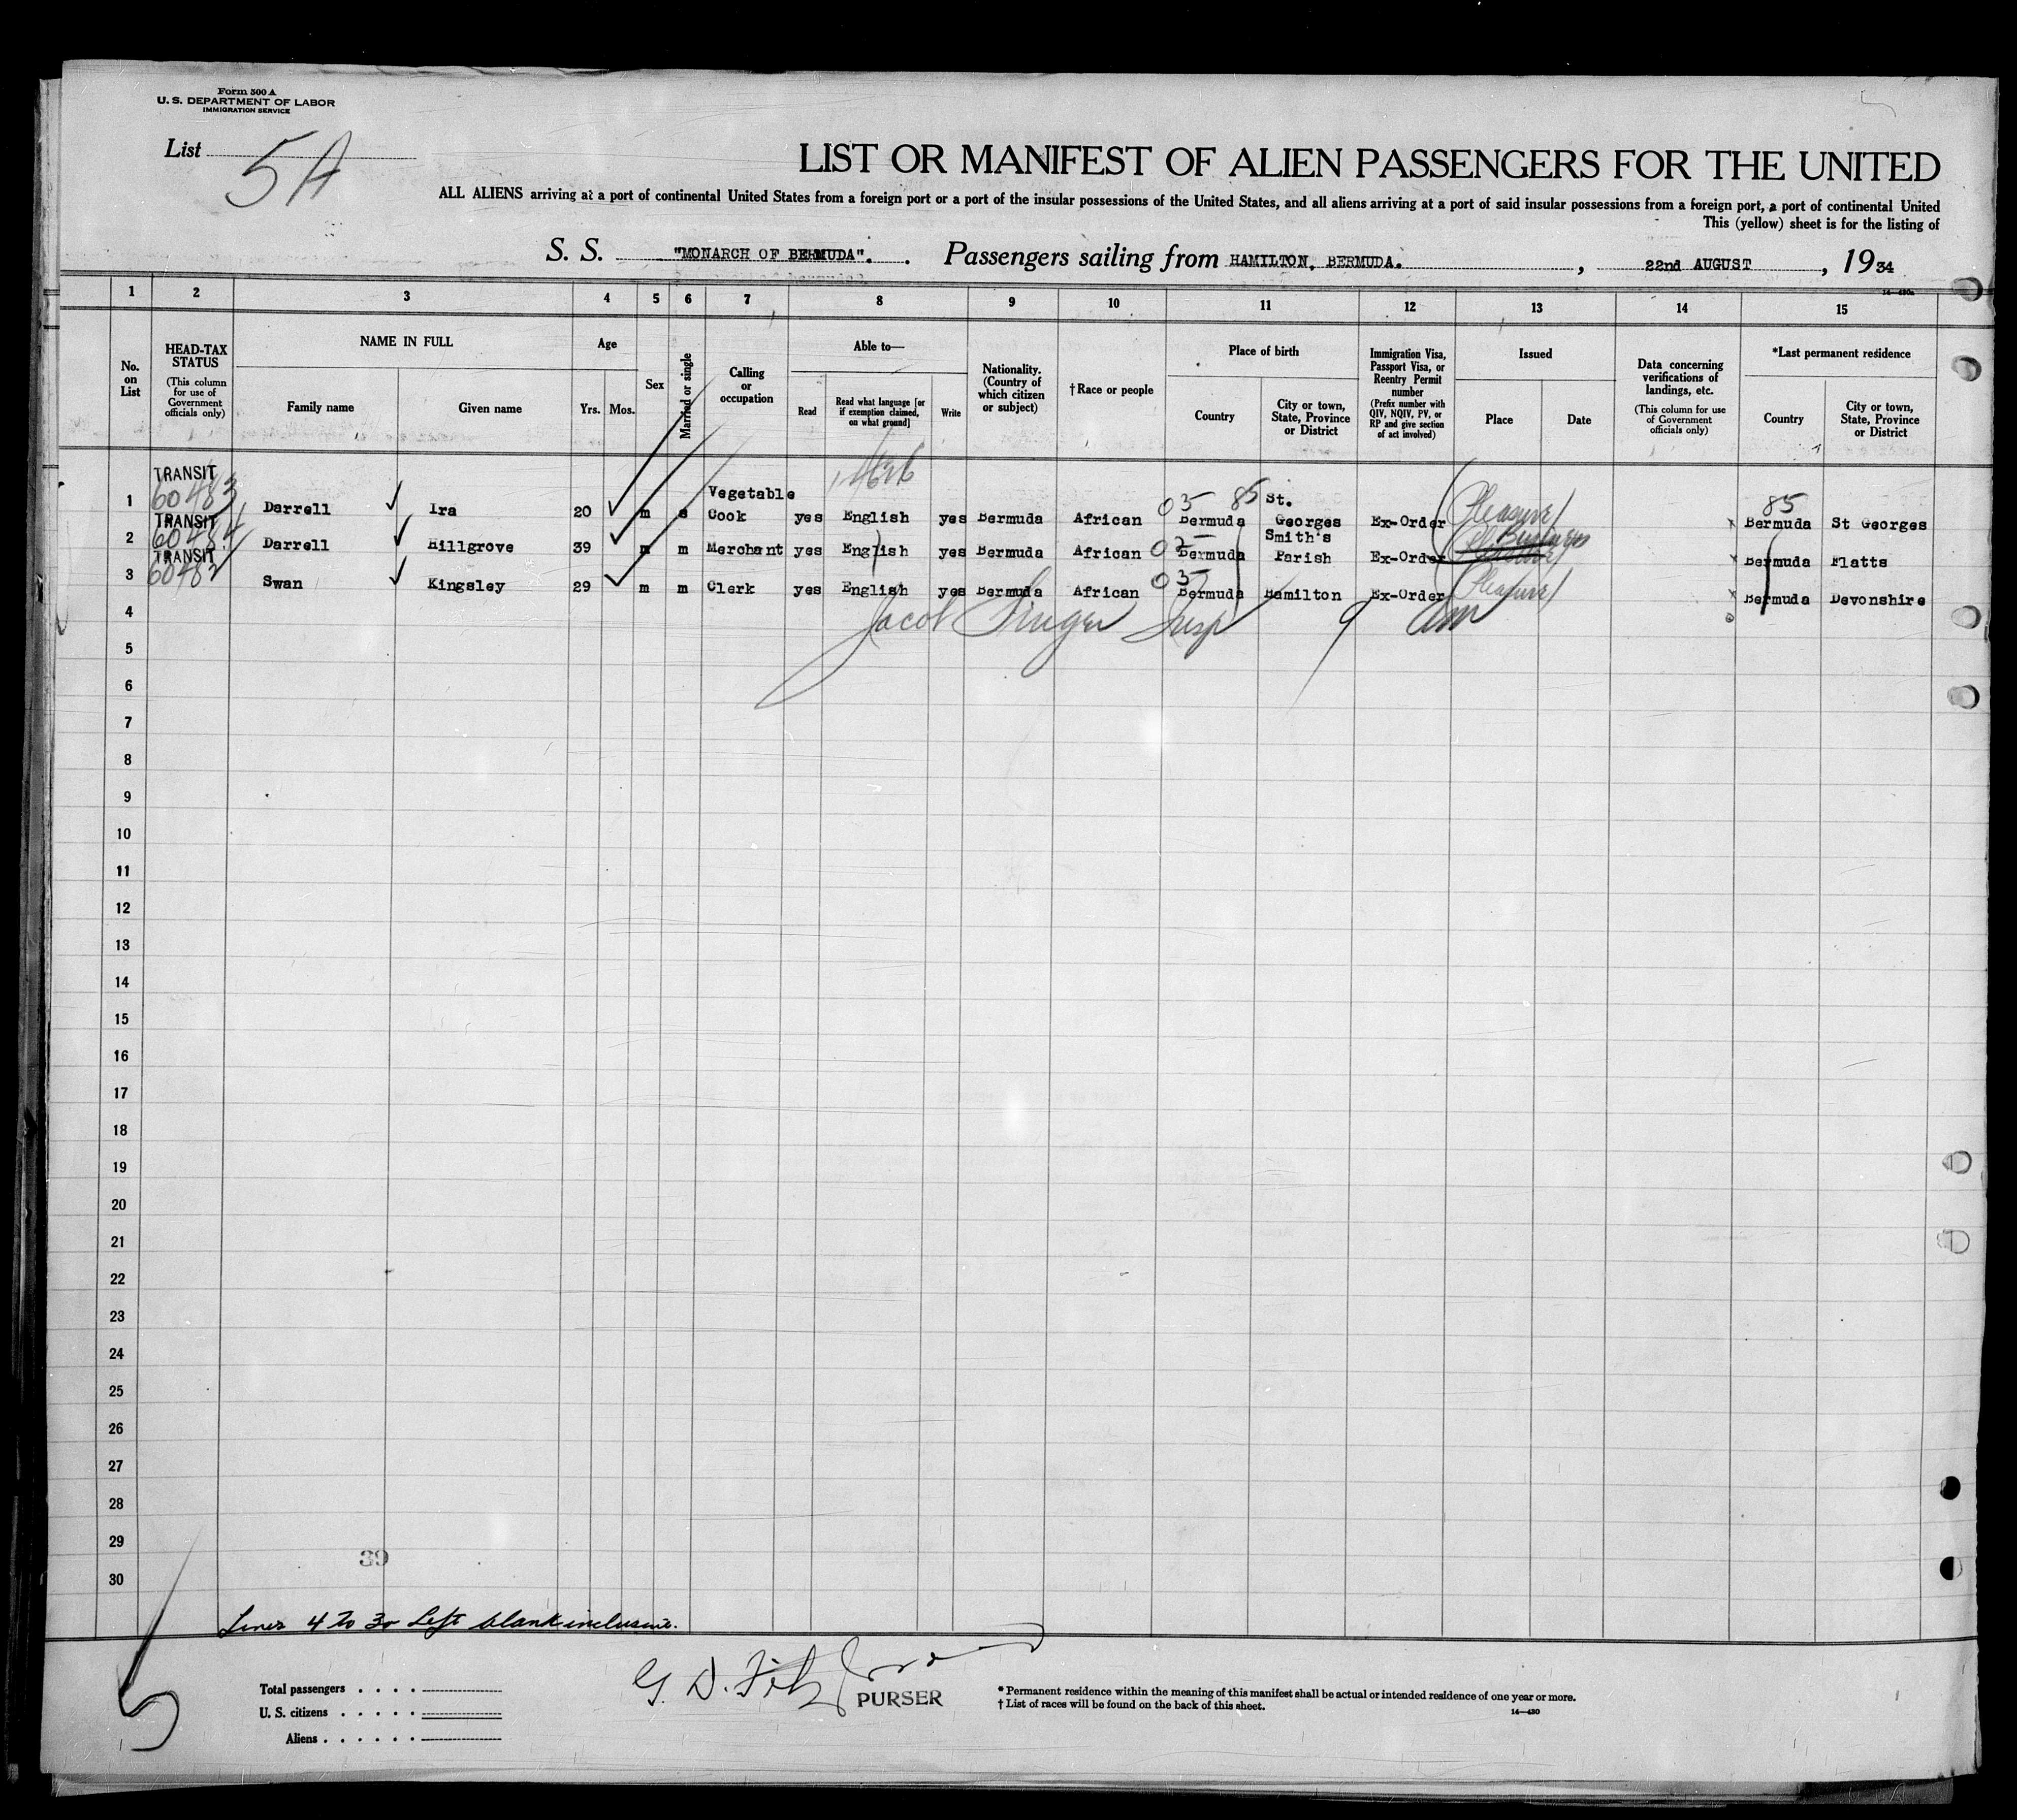 Form 500 A
U. S. DEPARTMENT OF LABOR
IMMIGRATION SERVICE
List 5A
LIST OR MANIFEST OF ALIEN PASSENGERS FOR THE UNITED
ALL ALIENS arriving at a port of continental United States from a foreign port or a port of the insular possessions of the United States, and all aliens arriving at a port of said insular possessions from a foreign port, a port of continental United
This (yellow) sheet is for the listing of
S. S. "MONARCH OF BERMUDA". Passengers sailing from HAMILTON, BERMUDA. , 22nd AUGUST , 19 34
1 2 3 4 5 6 7 8 9 10 11 12 13 14 15
No. on List
HEAD-TAX STATUS
(This column for use of Government officials only)
NAME IN FULL
Family name
Given name
Age
Yrs. Mos.
Sex
Married or single
Calling or occupation
Able to—
Read
Read what language [or if exemption claimed, on what ground]
Write
Nationality. (Country of which citizen or subject)
† Race or people
Place of birth
Country
City or town, State, Province or District
Immigration Visa, Passport Visa, or Reentry Permit number
(Prefix number with QIV, NQIV, PV, or RP and give section of act involved)
Issued
Place
Date
Data concerning verifications of landings, etc.
(This column for use of Government officials only)
*Last permanent residence
Country
City or town, State, Province or District
TRANSIT 60483
1 Darrell Ira 20 m s Vegetable Cook yes English yes Bermuda African 03 Bermuda 85 St. Georges Ex-Order Pleasure 85 Bermuda St Georges
TRANSIT 60484
2 Darrell Hillgrove 39 m m Merchant yes English yes Bermuda African Bermuda Smith's Parish Ex-Order Business Bermuda Flatts
TRANSIT 60482
3 Swan Kingsley 29 m m Clerk yes English yes Bermuda African 03 Bermuda Hamilton Ex-Order Pleasure Bermuda Devonshire
4 Jacob Singer Insp 9 am
5
6
7
8
9
10
11
12
13
14
15
16
17
18
19
20
21
22
23
24
25
26
27
28
29
39
30
Lines 4 to 30 Left blank inclusive.
Total passengers
U. S. citizens
Aliens
G. D. PURSER
* Permanent residence within the meaning of this manifest shall be actual or intended residence of one year or more.
† List of races will be found on the back of this sheet.
14—430